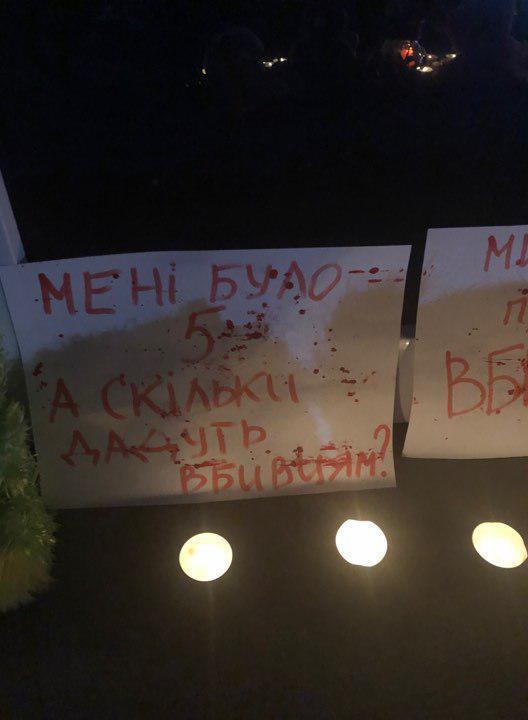 МЕНІ БУЛО
5
А СКІЛЬКИ
ДАДУТЬ
ВБИВЦЯМ?